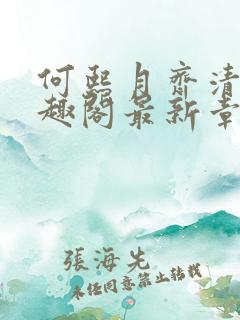 何熙月齋清
趣閣最新章
張海先
未經同意禁止轉載